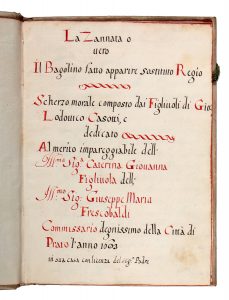 La Zannata o
vero
Il Bagolino fatto apparire sostituto Regio
Scherzo morale composto dai Figliuoli di Gio:
Lodovico Casotti, e
dedicato
Al merito impareggiabile dell:
Ill:ma Sig:ra Caterina Giovanna
Figliuola dell;
Ill:mo Sig: Giuseppe Maria
Frescobaldi
Commissario degnissimo della Città di
Prato l'anno
in sua casa con licenza del sig:r Padre